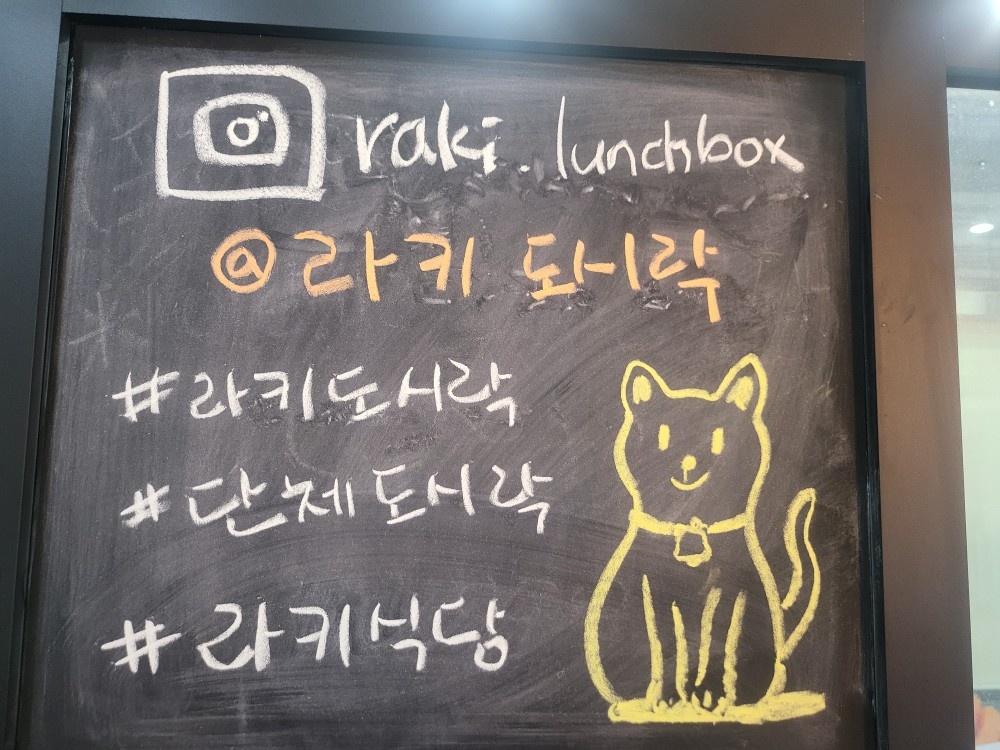 raki.lunchbox
@라키 도시락
#라키도시락
#단체도시락
#라키식당